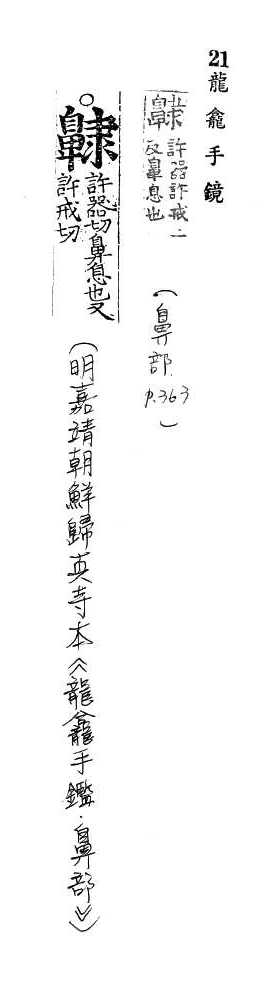 21 龍龕手鏡
許器許戒二
反鼻息也
(鼻部 p.363)
許器切鼻息也又
許戒切
(明嘉靖朝鮮歸真寺本《龍龕手鑑·鼻部》)